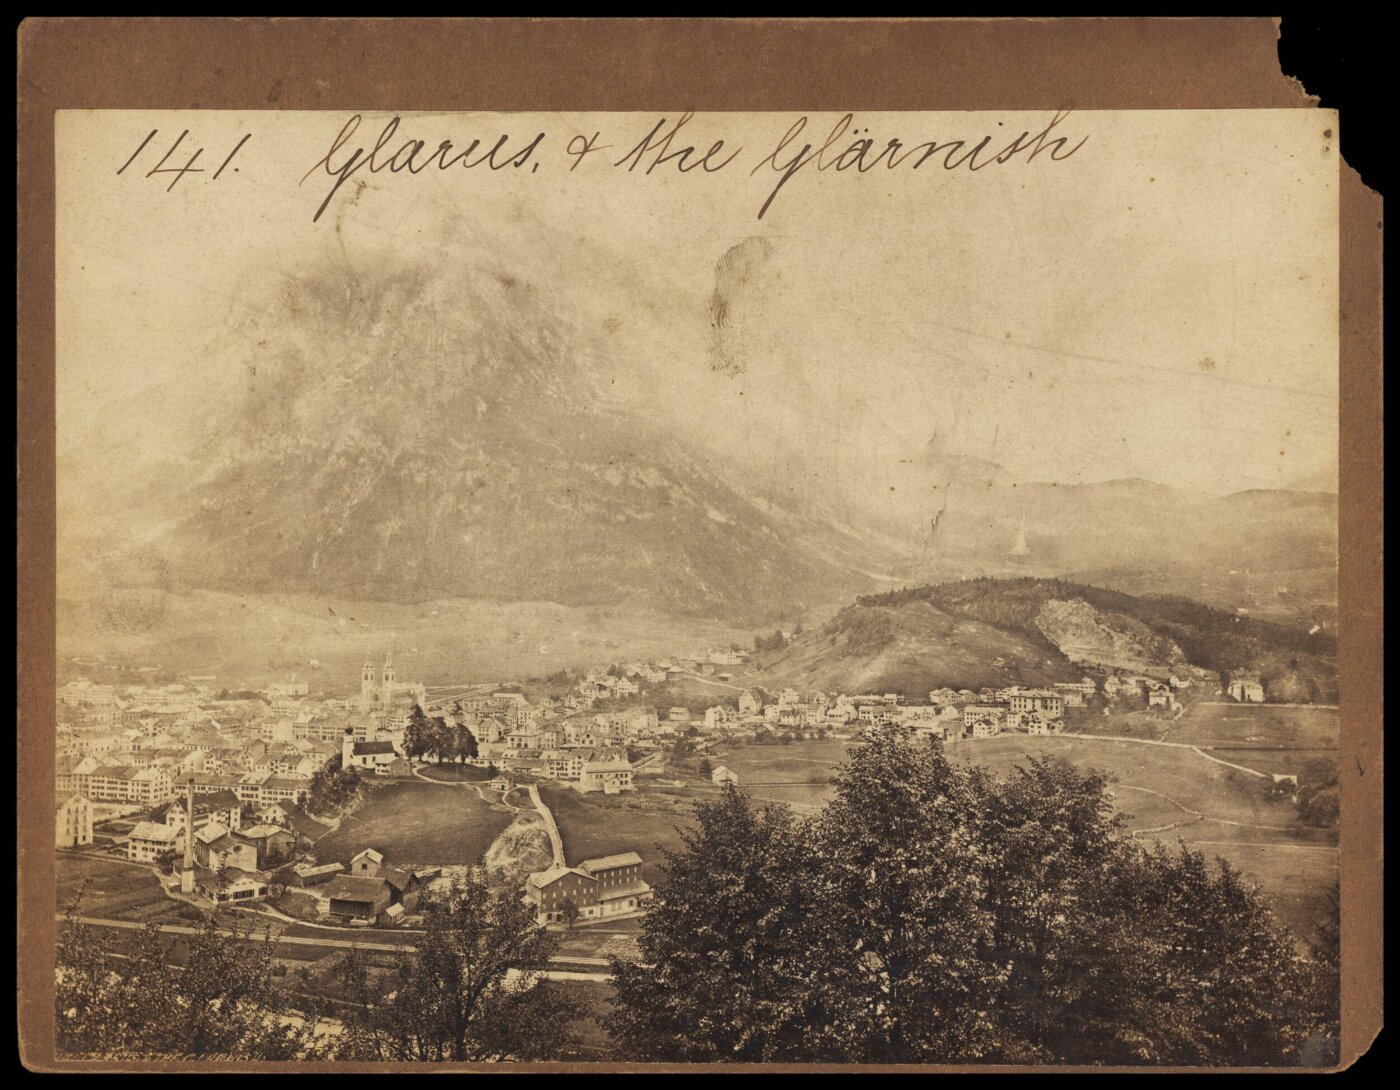 141. Glarus, & the Glärnish